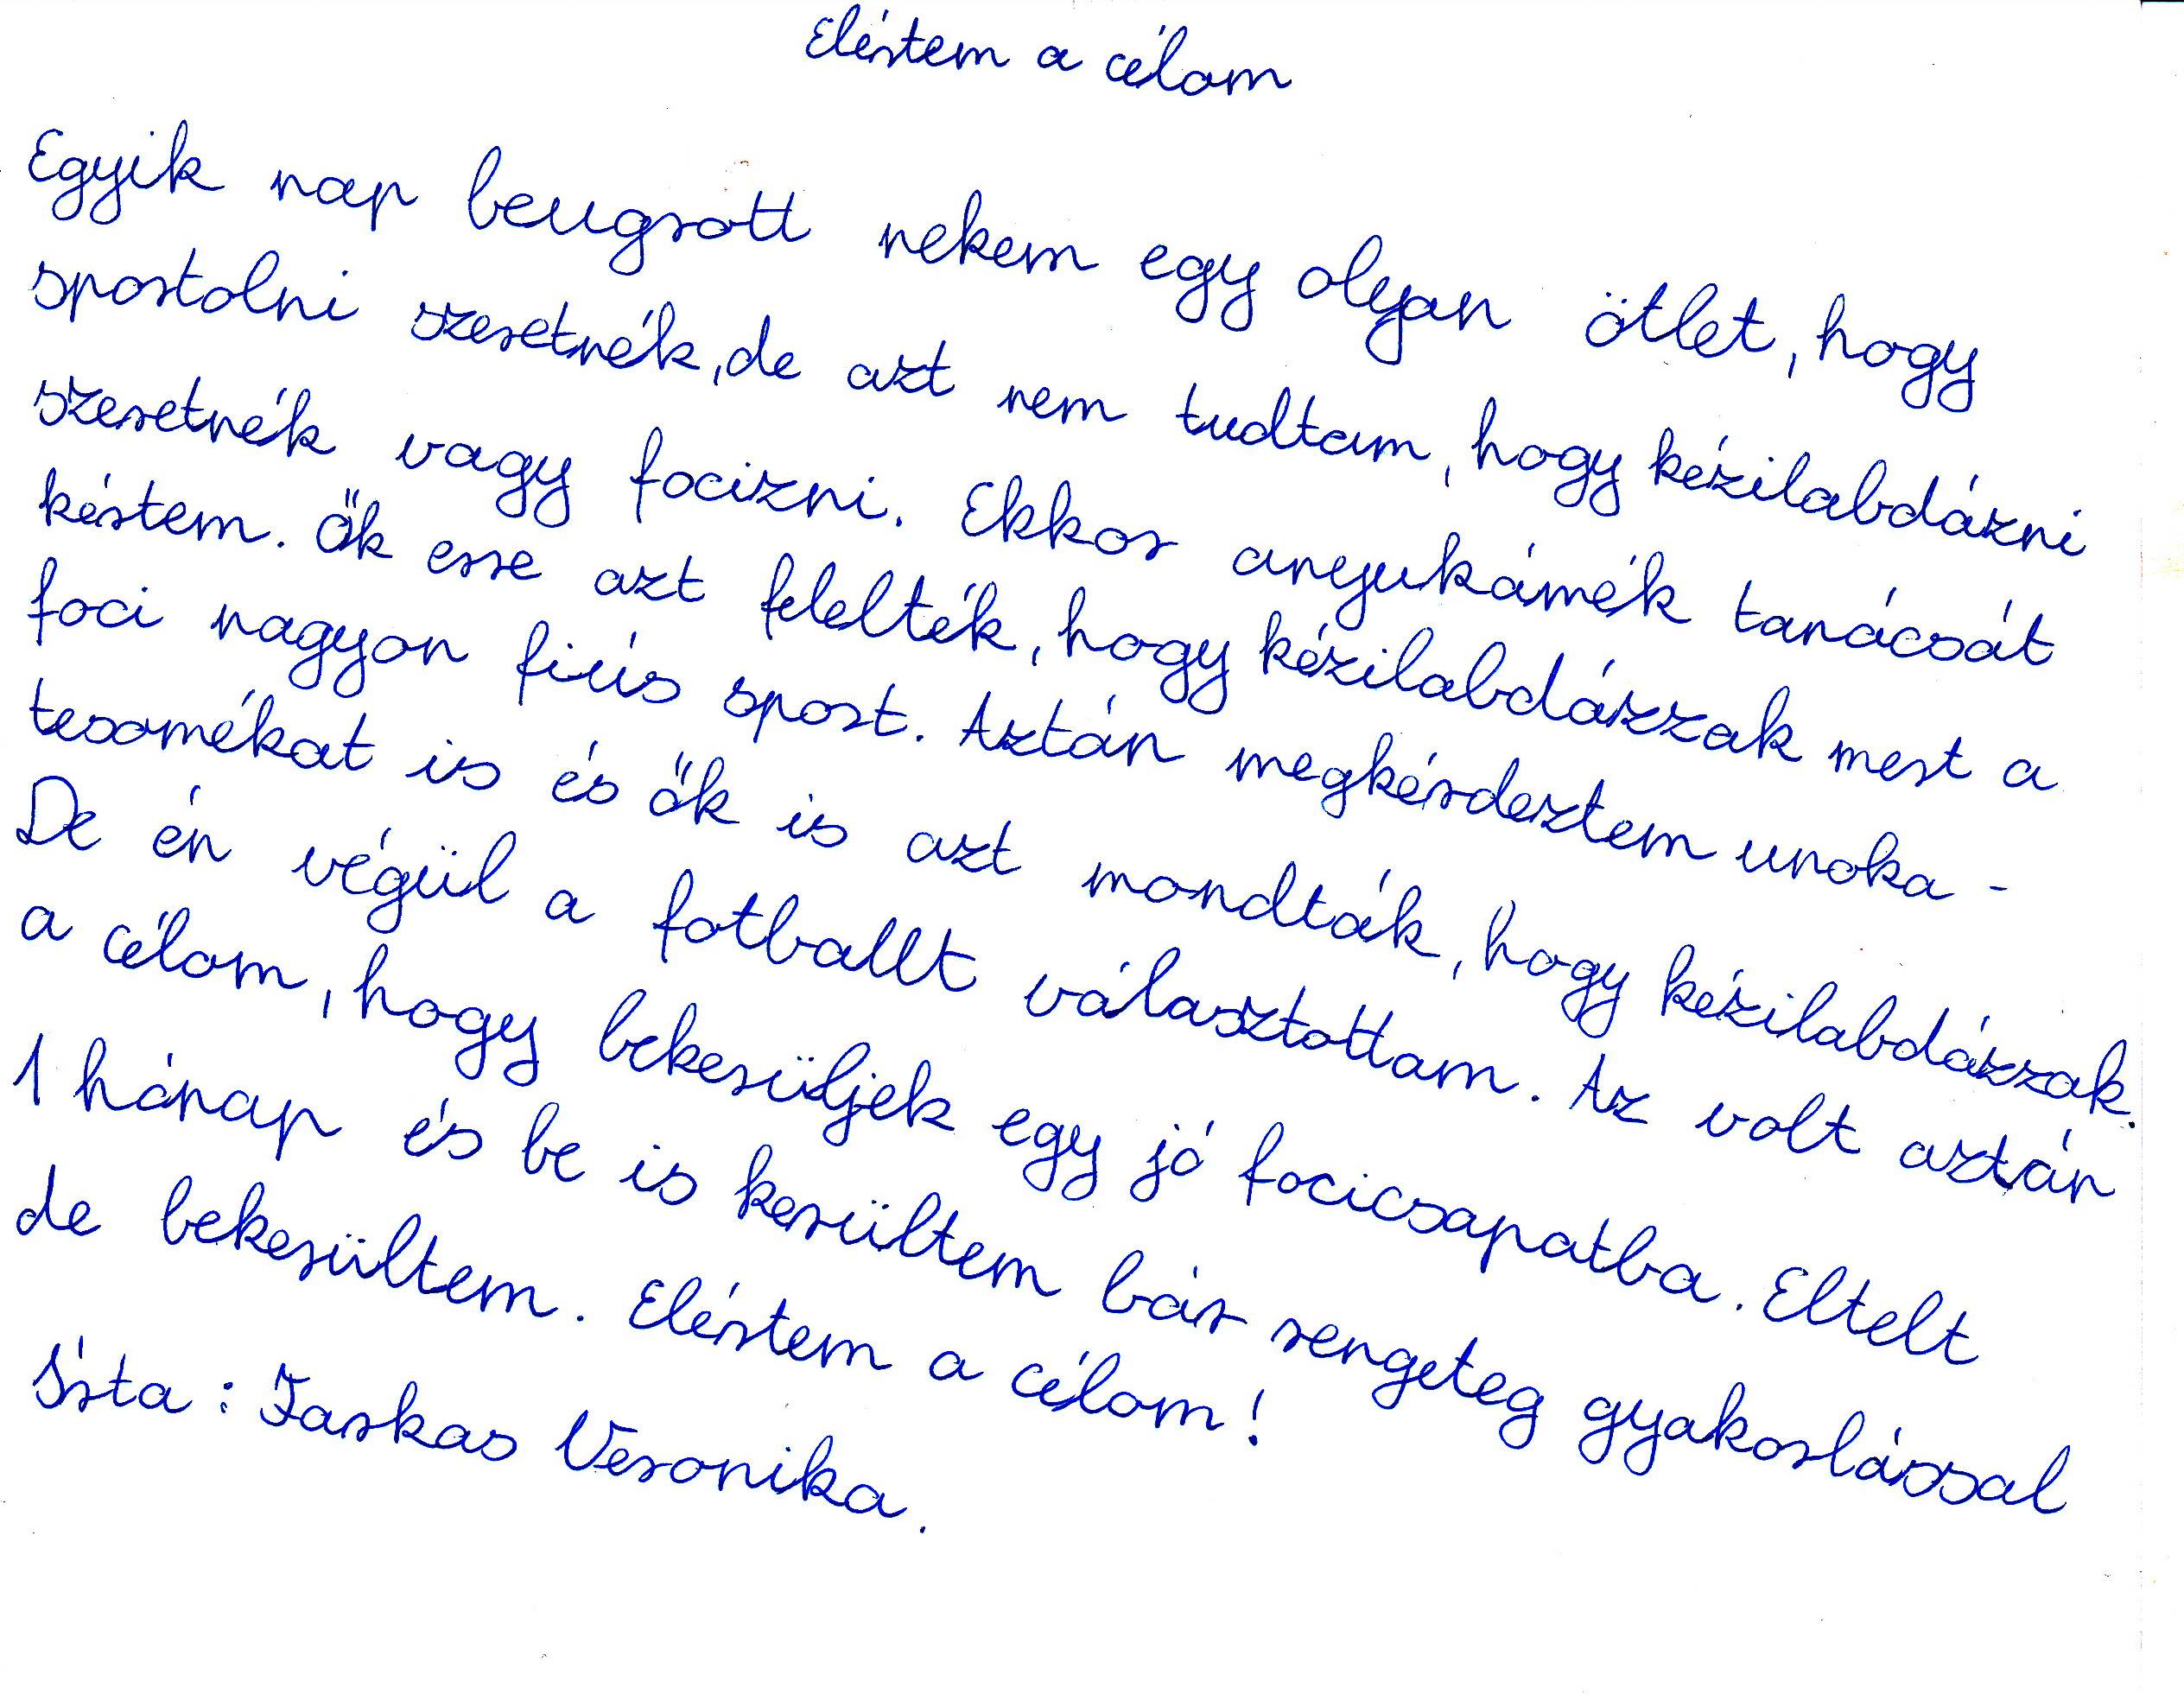 Elértem a célom
Egyik nap beugrott nekem egy olyan ötlet, hogy
sportolni szeretnék, de azt nem tudtam, hogy kézilabdázni
szeretnék vagy focizni. Ekkor anyukámék tanácsát
kértem. Ők erre azt felelték, hogy kézilabdázzak mert a
foci nagyon fiús sport. Aztán megkérdeztem unoka-
tesomékat is és ők is azt mondták, hogy kézilabdázzak.
De én végül a fotballt választottam. Az volt aztán
a célom, hogy bekerüljek egy jó focicsapatba. Eltelt
1 hónap és be is kerültem bár rengeteg gyakorlással
de bekerültem. Elértem a célom!
Írta: Farkas Veronika.